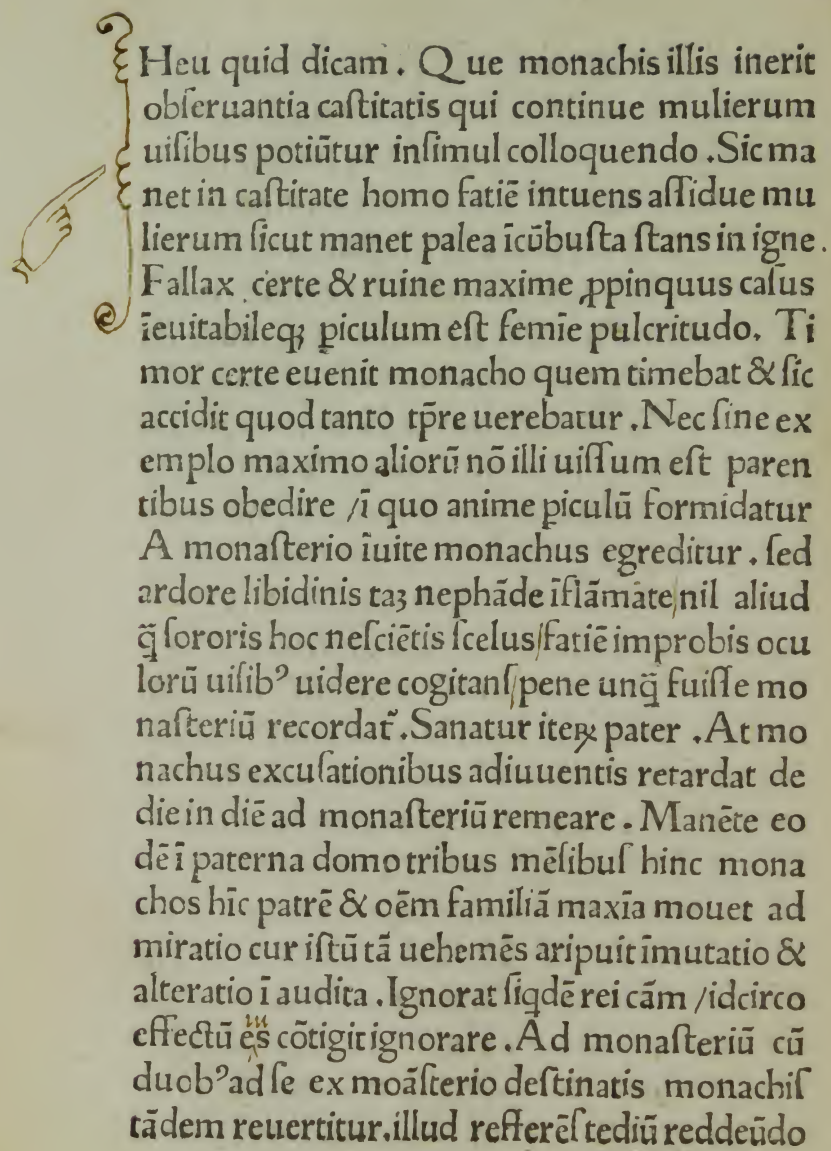 Heu quid dicam . Que monachis illis inerit
obſeruantia caſtitatis qui continue mulierum
uiſibus potiūtur inſimul colloquendo .Sic ma
net in caſtitate homo fatiē intuens aſſidue mu
lierum ſicut manet palea īcūbuſta ſtans in igne .
Fallax certe & ruine maxime ꝓpinquus caſus
īeuitabileqꝫ ꝑiculum eſt femīe pulcritudo. Ti
mor certe euenit monacho quem timebat & ſic
accidit quod tanto tp̄re uerebatur .Nec ſine ex
emplo maximo aliorū nō illi uiſſum eſt paren
tibus obedire /ī quo anime ꝑiculū formidatur
A monaſterio īuite monachus egreditur . ſed
ardore libidinis taꝫ nephāde īflāmate/nil aliud
q̄ ſororis hoc neſciētis ſcelus/fatiē improbis ocu
lorū uiſibꝰ uidere cogitanſ/pene unq̄ fuiſſe mo
naſteriū recordat᷑ .Sanatur iteꝝ pater .At mo
nachus excuſationibus adiuuentis retardat de
die in diē ad monaſteriū remeare . Manēte eo
dē ī paterna domo tribus mēſibuſ hinc mona
chos hīc patrē & oēm familiā maxīa mouet ad
miratio cur iſtū tā uehemēs aripuit īmutatio &
alteratio ī audita .Ignorat ſiqdē rei cām /idcirco
effectū eſ̄ cōtigit ignorare .Ad monaſteriū cū
duobꝰ ad ſe ex moāſterio deſtinatis monachiſ
tādem reuertitur.illud refferēſ tediū reddeūdo